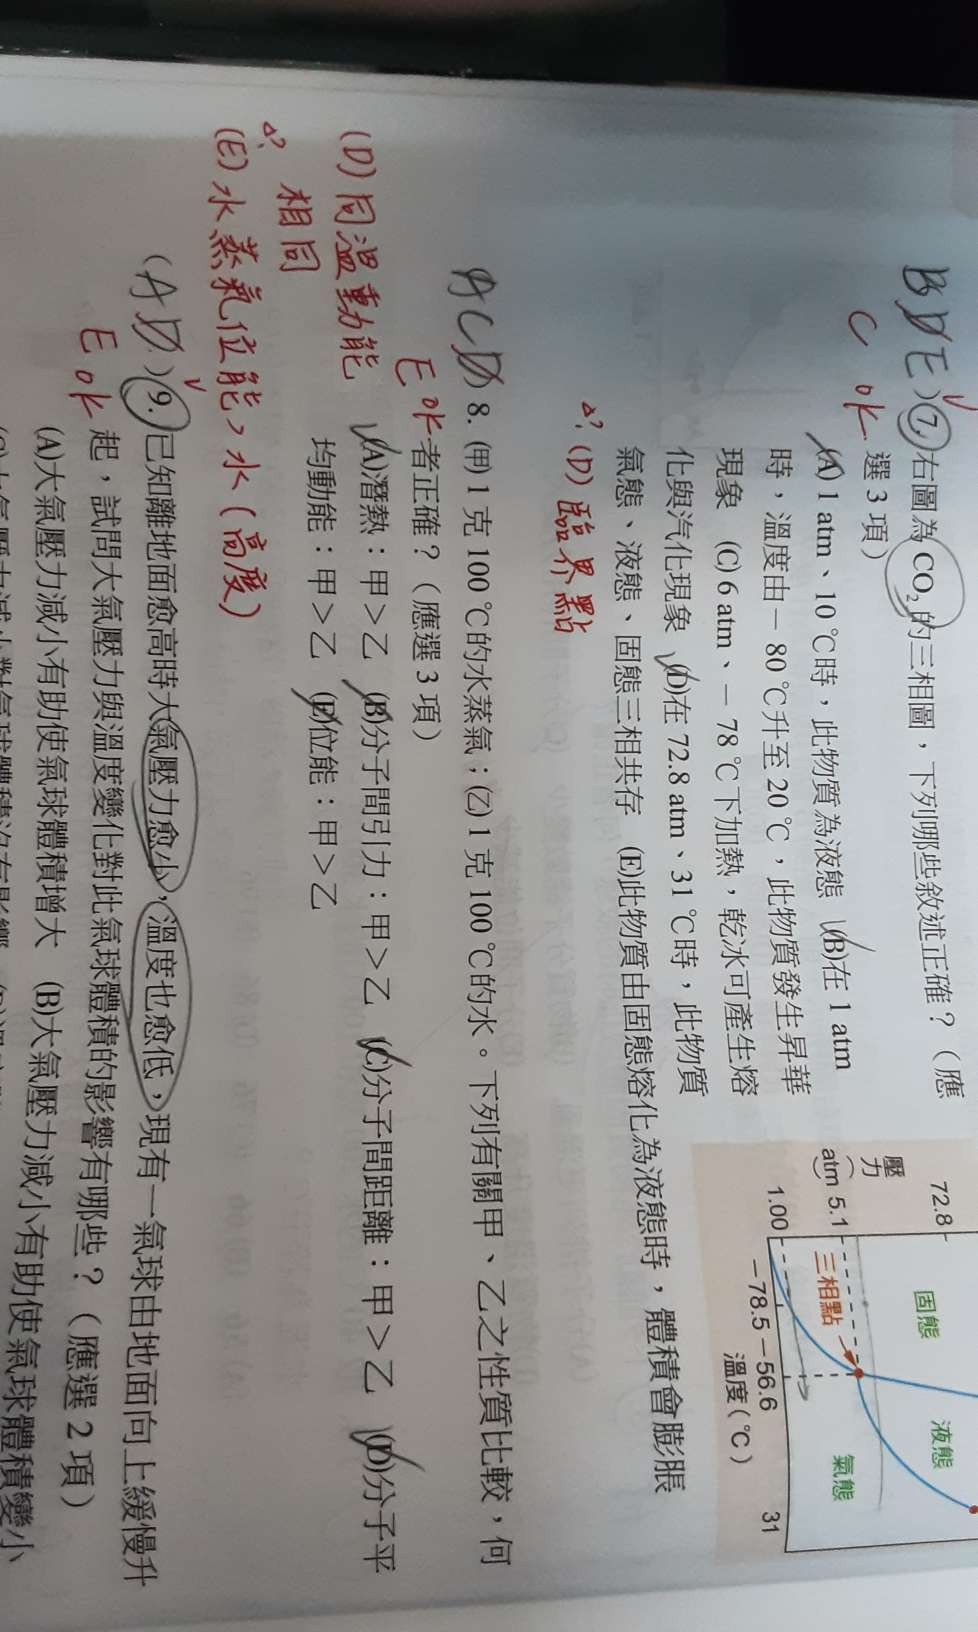 BDE) 7. 右圖為CO₂的三相圖，下列哪些敘述正確？（應
C ok 選3項）
(A) 1 atm、10 ℃時，此物質為液態 (B)在 1 atm
時，溫度由－80 ℃升至 20 ℃，此物質發生昇華
現象 (C) 6 atm、－78 ℃下加熱，乾冰可產生熔
化與汽化現象 (D)在 72.8 atm、31 ℃時，此物質
氣態、液態、固態三相共存 (E)此物質由固態熔化為液態時，體積會膨脹
△? (D) 臨界點
72.8
壓力
(atm)
5.1
1.00
固態
液態
氣態
三相點
－78.5 －56.6
31
溫度(℃)
ACD) 8. (甲) 1 克 100 ℃的水蒸氣；(乙) 1 克 100 ℃的水。下列有關甲、乙之性質比較，何
E ok 者正確？（應選 3 項）
(A)潛熱：甲＞乙 (B)分子間引力：甲＞乙 (C)分子間距離：甲＞乙 (D)分子平
均動能：甲＞乙 (E)位能：甲＞乙
(D) 同溫動能
相同
△? (E) 水蒸氣位能＞水 (高度)
(AD) 9. 已知離地面愈高時大氣壓力愈小，溫度也愈低，現有一氣球由地面向上緩慢升
E ok 起，試問大氣壓力與溫度變化對此氣球體積的影響有哪些？（應選 2 項）
(A)大氣壓力減小有助使氣球體積增大 (B)大氣壓力減小有助使氣球體積變小